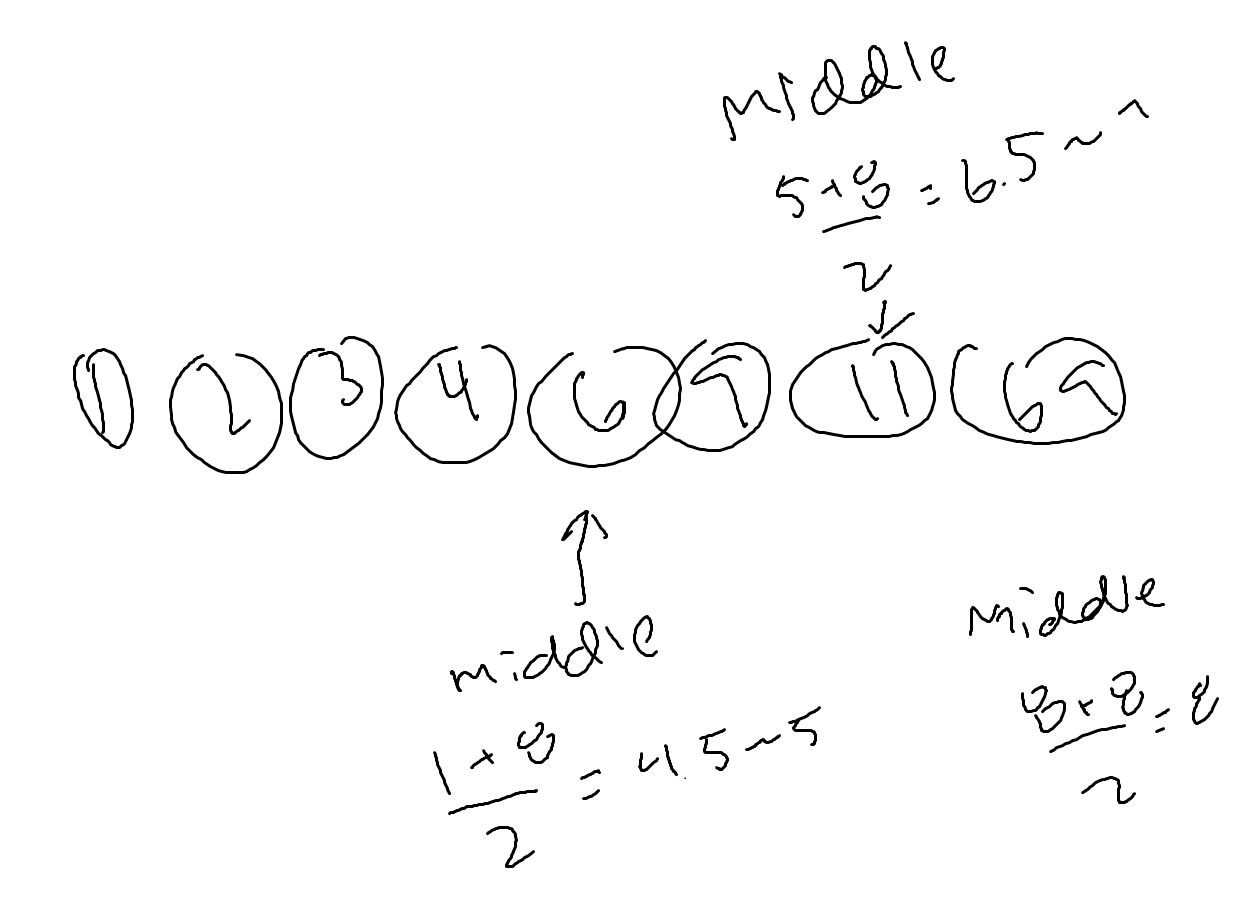 middle
5+8 = 6.5 ~ 7
2
1 2 3 4 6 9 11 69
middle
1+8 = 4.5 ~ 5
2
middle
8+8 = 8
2